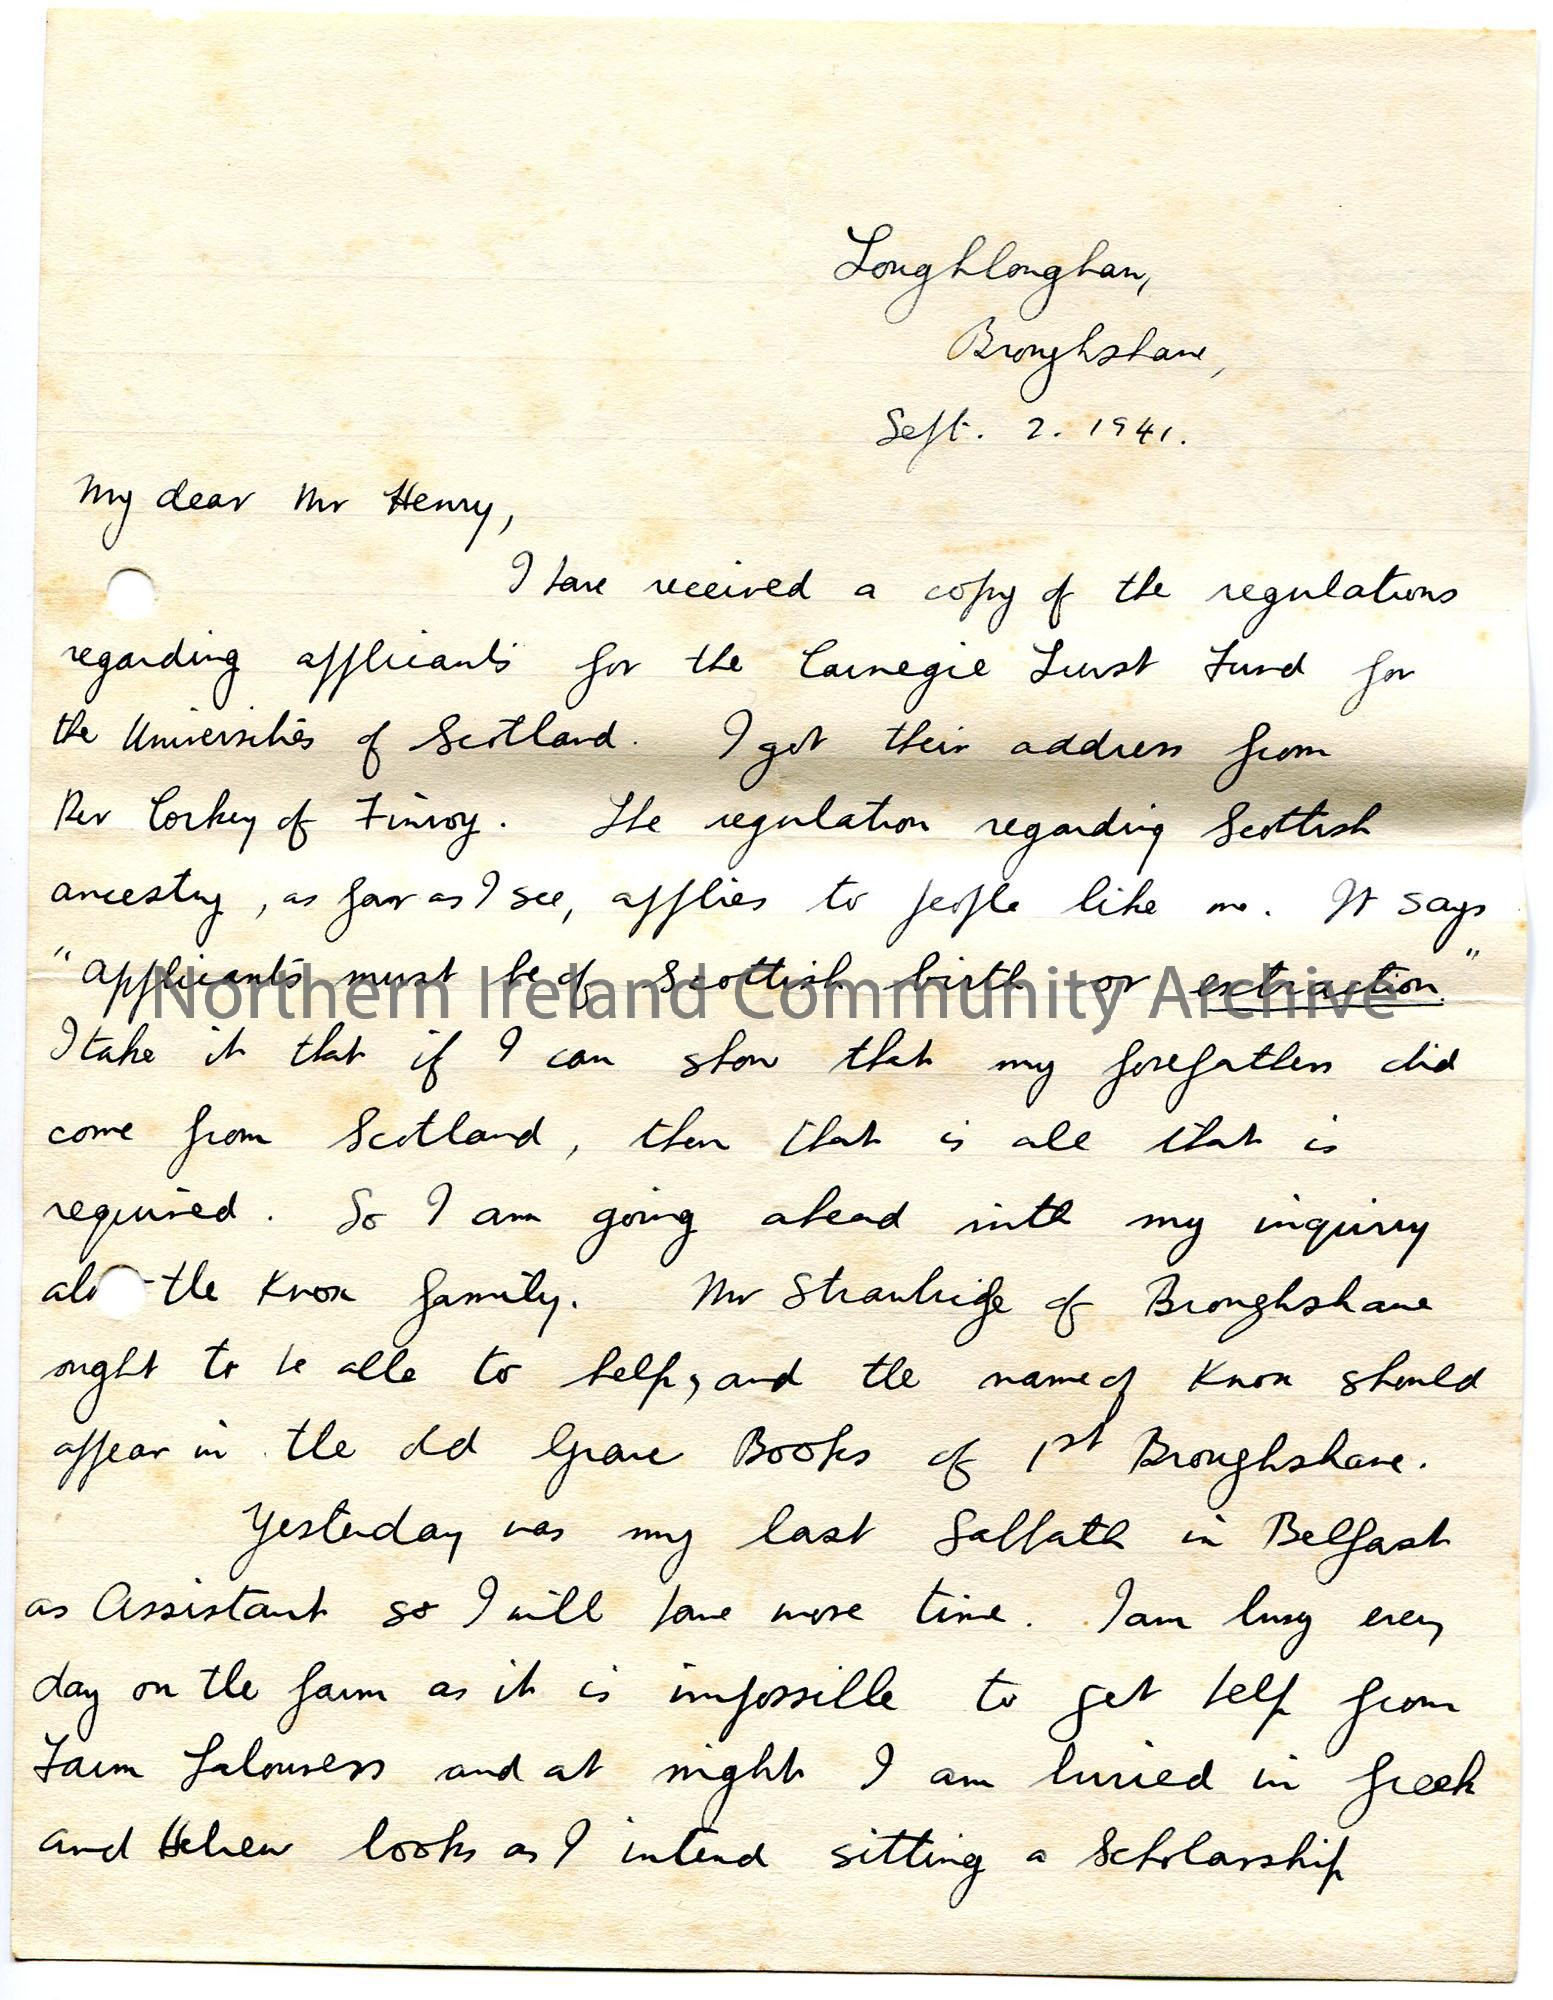 Loughloughan,
Broughshane,
Sept. 2. 1941.
My dear Mr Henry,
I have received a copy of the regulations
regarding applicants for the Carnegie Trust Fund for
the Universities of Scotland. I got their address from
Rev Corkey of Finvoy. The regulation regarding Scottish
ancestry, as far as I see, applies to people like me. It says
"applicants must be of Scottish birth or extraction."
Northern Ireland Community Archive
I take it that if I can show that my forefathers did
come from Scotland, then that is all that is
required. So I am going ahead with my inquiry
abo the Knox family. Mr Strawbridge of Broughshane
ought to be able to help, and the name of Knox should
appear in the old Grave Books of 1st Broughshane.
Yesterday was my last Sabbath in Belfast
as Assistant so I will have more time. I am busy every
day on the farm as it is impossible to get help from
Farm Labourers and at night I am buried in Greek
and Hebrew books as I intend sitting a Scholarship